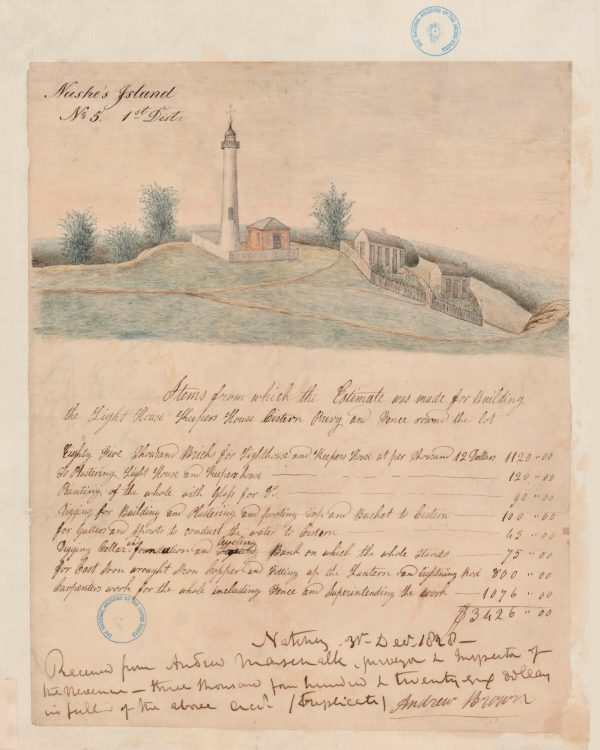 THE NATIONAL ARCHIVES OF THE UNITED STATES
Nashe's Island
No 5. 1st Dist:
Items from which the Estimate was made for Building
the Light House Keepers House Cistern Privy and Fence round the lot
Eighty Five Thousand Bricks for Lighthouse and Keepers House at per Thousand 12 Dollars 1120 " 00
To Plastering Light House and Keepers house 120 " 00
Painting of the whole with Glass for Do. 90 " 00
Digging for Building and Plastering and footing Top and Bucket to Cistern 100 " 00
for Gutters and Spouts to conduct the water to Cistern 45 " 00
Digging Cellar and foundation and leveling Bank on which the whole stands 75 " 00
for Cast Iron wrought Iron Copper and Fitting up the Lantern and lightning Rod 800 " 00
Carpenters work for the whole including Fence and Superintending the work 1076 " 00
$3426 " 00
THE NATIONAL ARCHIVES OF THE UNITED STATES
Natchez, 3d Decr. 1828
Received from Andrew Marschalk, Surveyor & Inspector of
the revenue - three thousand four hundred & twenty six dollars
in full of the above acct. (Duplicate) Andrew Brown